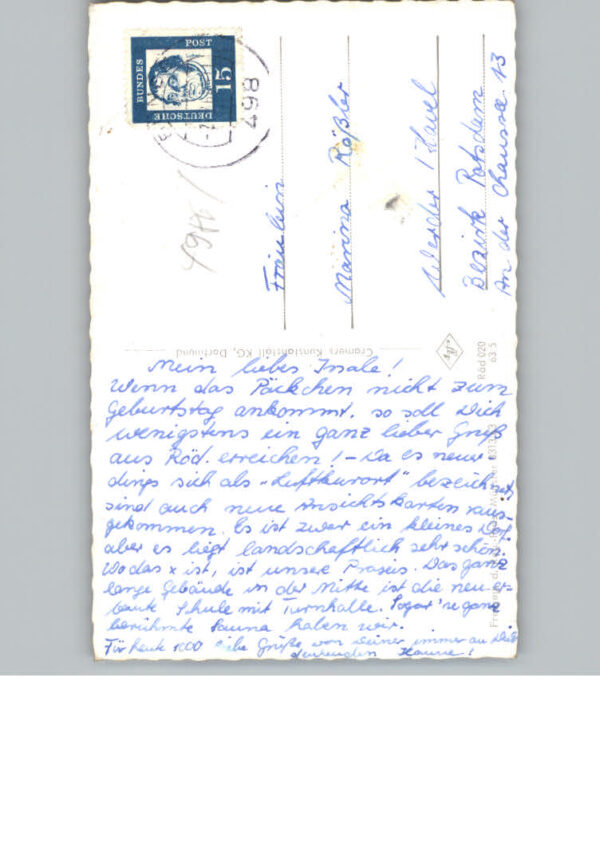 Mein liebes Insale!
Wenn das Päckchen nicht zum
Geburtstag ankommt, so soll Dich
wenigstens ein ganz lieber Gruß
aus Röd. erreichen! – Da es neuer
dings sich als „Luftkurort" bezeichnet,
sind auch neue Ansichtskarten raus-
gekommen. Es ist zwar ein kleines Dorf
aber es liegt landschaftlich sehr schön.
Wo das x ist, ist unsere Praxis. Das ganz
lange Gebäude in der Mitte ist die neu er-
baute Schule mit Turnhalle. Sogar 'ne ganz
berühmte Sauna haben wir.
Für heute 1000 liebe Grüße von Deiner immer an Dich
denkenden Hanne!
Fräulein
Marina Rößler
Werder / Havel
Bezirk Potsdam
An der Chaussee 13
DEUTSCHE
BUNDES
POST
15
798
Cramers Kunstanstalt KG, Dortmund
Röd 020